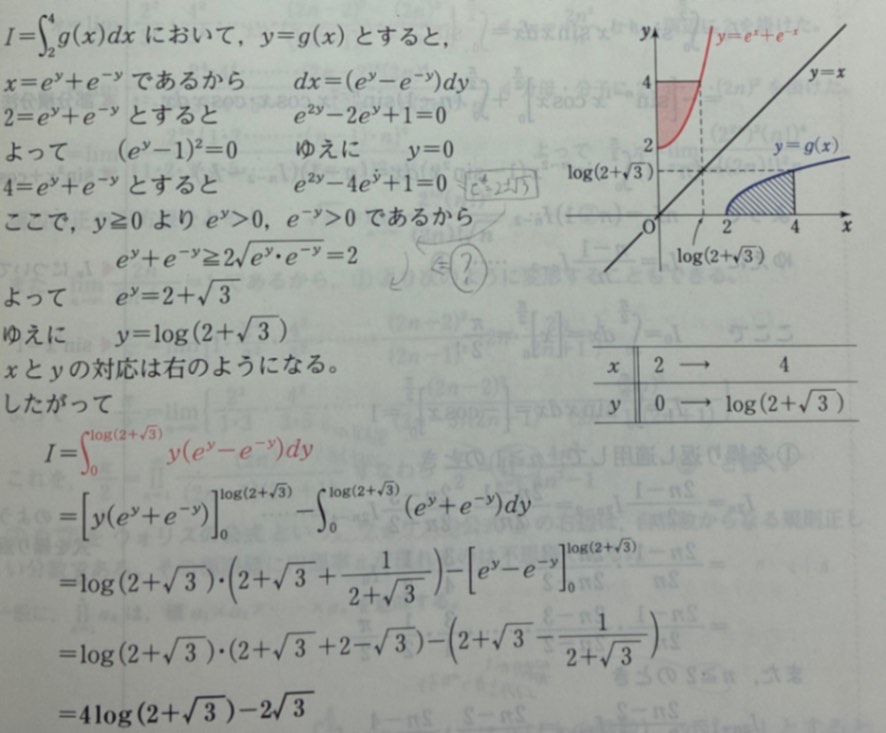 I=∫₂⁴g(x)dx において，y=g(x) とすると，
x=eʸ+e⁻ʸ であるから dx=(eʸ−e⁻ʸ)dy
2=eʸ+e⁻ʸ とすると e²ʸ−2eʸ+1=0
よって (eʸ−1)²=0 ゆえに y=0
4=eʸ+e⁻ʸ とすると e²ʸ−4eʸ+1=0
ここで，y≧0 より eʸ>0，e⁻ʸ>0 であるから
eʸ+e⁻ʸ≧2√(eʸ·e⁻ʸ)=2
②
よって eʸ=2+√3
ゆえに y=log(2+√3)
xとyの対応は右のようになる。
したがって
I=∫₀^{log(2+√3)} y(eʸ−e⁻ʸ)dy
=[y(eʸ+e⁻ʸ)]₀^{log(2+√3)} −∫₀^{log(2+√3)}(eʸ+e⁻ʸ)dy
=log(2+√3)·(2+√3+1/(2+√3))−[eʸ−e⁻ʸ]₀^{log(2+√3)}
=log(2+√3)·(2+√3+2−√3)−(2+√3−1/(2+√3))
=4log(2+√3)−2√3
y
y=eˣ+e⁻ˣ
4
y=x
2
y=g(x)
log(2+√3)
O
2
4
x
log(2+√3)
x 2 → 4
y 0 → log(2+√3)